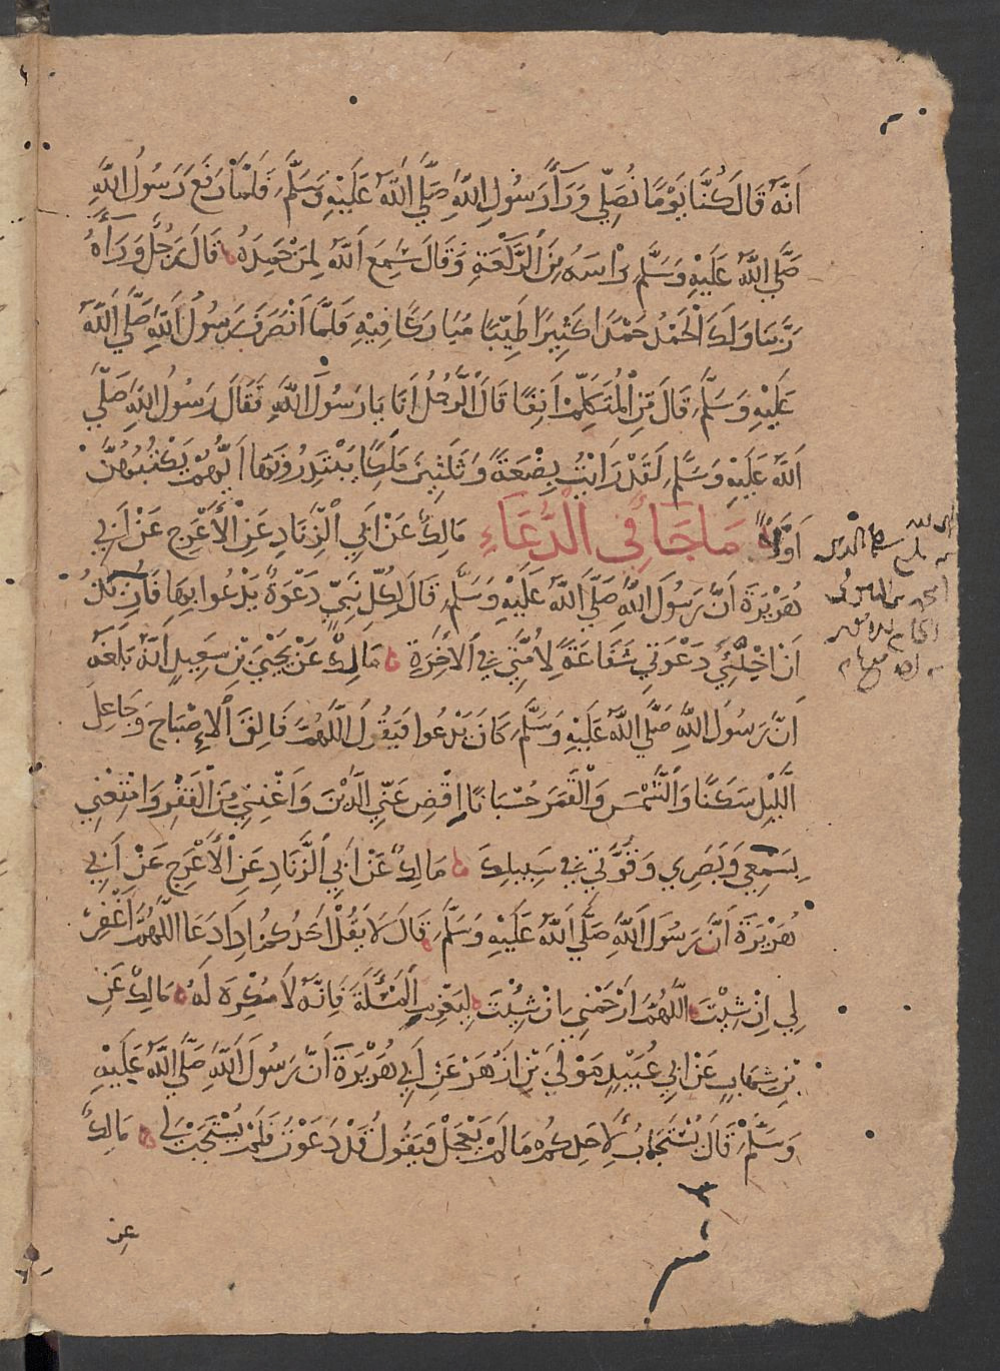 اَنَّهُ قَالَ كُنَّا يَوْمًا نُصَلِّي وَرَآءَ رَسُولِ اللَّهِ صَلَّي اللَّهُ عَلَيْهِ وَسَلَّمَ فَلَمَّا رَفَعَ رَسُولُ اللَّهِ
صَلَّي اللَّهُ عَلَيْهِ وَسَلَّمَ رَاْسَهُ مِنَ الرَّكْعَةِ وَقَالَ سَمِعَ اللَّهُ لِمَنْ حَمِدَهُ قَالَ رَجُلٌ وَرَآءَهُ
رَبَّنَا وَلَكَ الْحَمْدُ حَمْدًا كَثِيرًا طَيِّبًا مُبَارَكًا فِيْهِ فَلَمَّا انْصَرَفَ رَسُولُ اللَّهِ صَلَّي اللَّهُ
عَلَيْهِ وَسَلَّمَ قَالَ مَنِ الْمُتَكَلِّمُ اَنِفًا قَالَ الرَّجُلُ اَنَا يَا رَسُولَ اللَّهِ فَقَالَ رَسُولُ اللَّهِ صَلَّي
اللَّهُ عَلَيْهِ وَسَلَّمَ لَقَدْ رَاَيْتُ بِضْعَةً وَثَلٰثِينَ مَلَكًا يَبْتَدِرُونَهَا اَيُّهُمْ يَكْتُبُهُنَّ
اَوَّلًا مَا جَآءَ فِي الدُّعَاءِ مَالِكٌ عَنْ اَبِي الزِّنَادِ عَنِ الْاَعْرَجِ عَنْ اَبِي
هُرَيْرَةَ اَنَّ رَسُولَ اللَّهِ صَلَّي اللَّهُ عَلَيْهِ وَسَلَّمَ قَالَ لِكُلِّ نَبِيٍّ دَعْوَةٌ يَدْعُوا بِهَا فَاُرِيْدُ
اَنْ اَخْتَبِيَ دَعْوَتِي شَفَاعَةً لِاُمَّتِي فِي الْاٰخِرَةِ مَالِكٌ عَنْ يَحْيَيٰ بْنِ سَعِيدٍ اَنَّهُ بَلَغَهُ
اَنَّ رَسُولَ اللَّهِ صَلَّي اللَّهُ عَلَيْهِ وَسَلَّمَ كَانَ يَدْعُوا فَيَقُولُ اللَّهُمَّ فَالِقَ الْاِصْبَاحِ وَجَاعِلَ
الَّيْلِ سَكَنًا وَالشَّمْسَ وَالْقَمَرَ حُسْبَانًا اِقْضِ عَنِّي الدَّيْنَ وَاَغْنِنِي مِنَ الْفَقْرِ وَامْتِعْنِي
بِسَمْعِي وَبَصَرِي وَقُوَّتِي فِي سَبِيلِكَ مَالِكٌ عَنْ اَبِي الزِّنَادِ عَنِ الْاَعْرَجِ عَنْ اَبِي
هُرَيْرَةَ اَنَّ رَسُولَ اللَّهِ صَلَّي اللَّهُ عَلَيْهِ وَسَلَّمَ قَالَ لَا يَقُلْ اَحَدُكُمْ اِذَا دَعَا اللَّهُمَّ اغْفِرْ
لِي اِنْ شِئْتَ اللَّهُمَّ ارْحَمْنِي اِنْ شِئْتَ لِيَعْزِمِ الْمَسْئَلَةَ فَاِنَّهُ لَا مُكْرِهَ لَهُ مَالِكٌ عَنِ
بْنِ شِهَابٍ عَنْ اَبِي عُبَيْدٍ مَوْلَي بْنِ اَزْهَرَ عَنْ اَبِي هُرَيْرَةَ اَنَّ رَسُولَ اللَّهِ صَلَّي اللَّهُ عَلَيْهِ
وَسَلَّمَ قَالَ يُسْتَجَابُ لِاَحَدِكُمْ مَا لَمْ يَعْجَلْ فَيَقُولُ قَدْ دَعَوْتُ فَلَمْ يُسْتَجَبْ لِي مَالِكٌ
عن